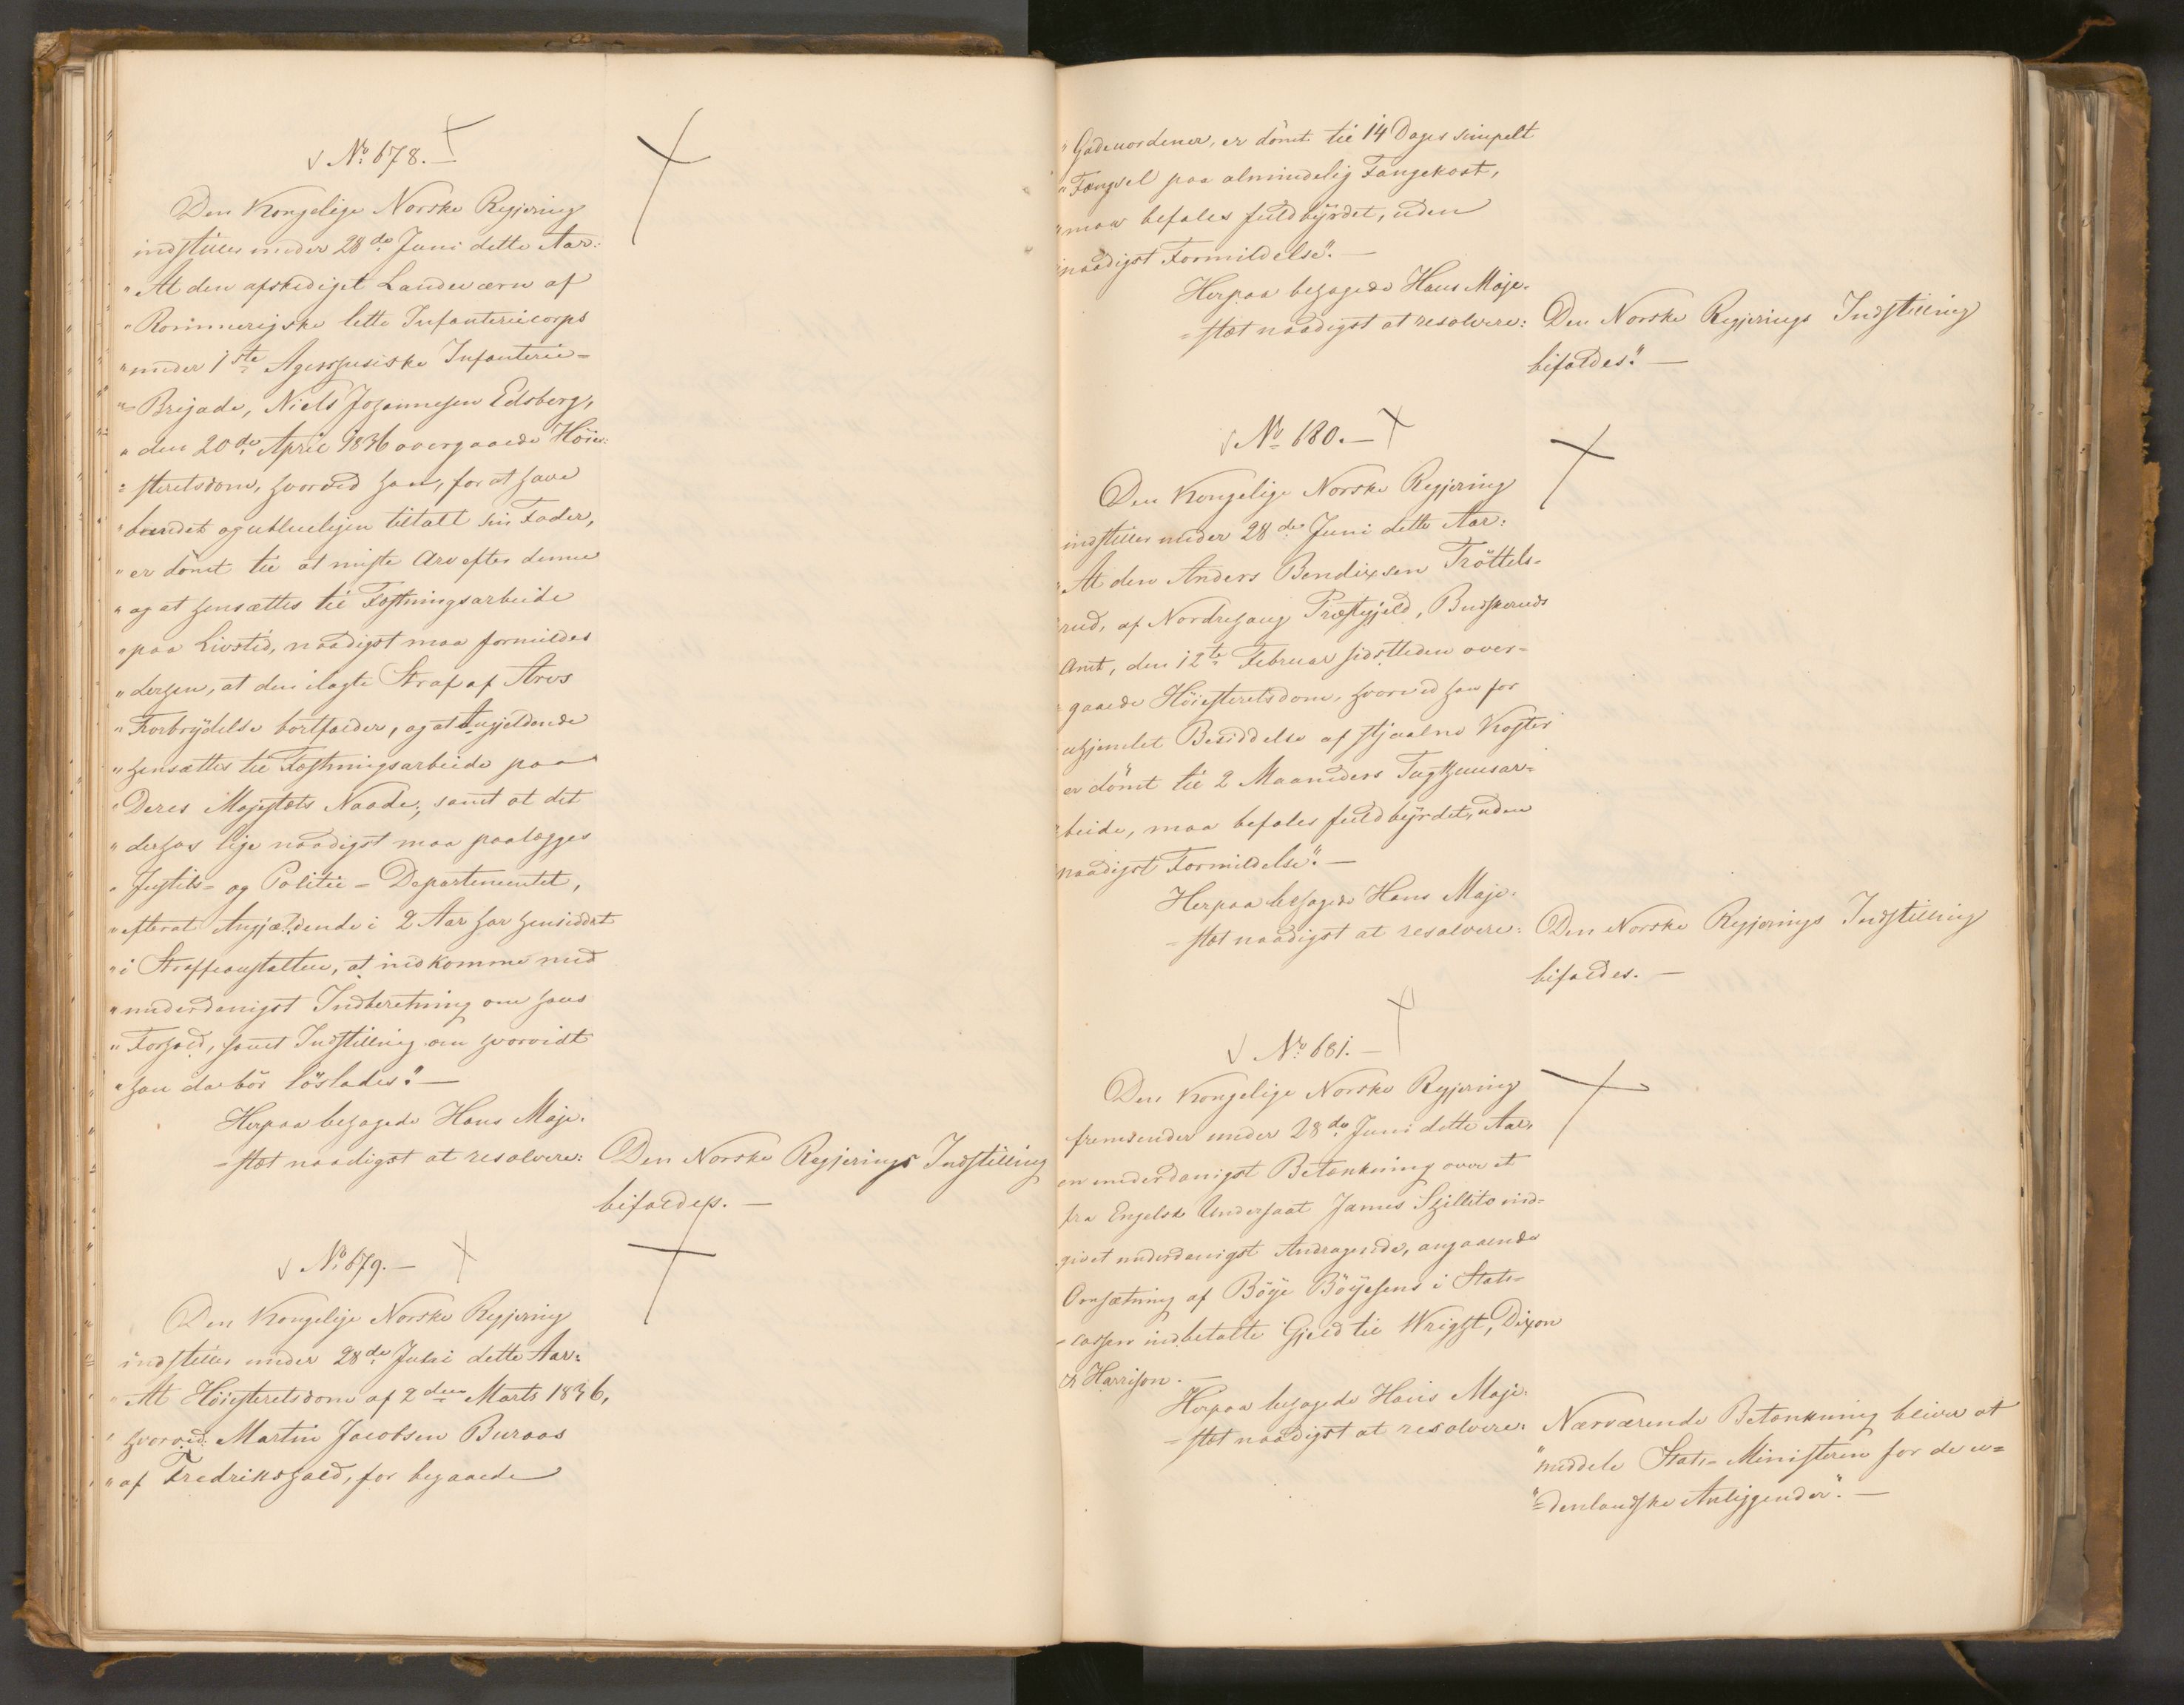 √ No. 678. —
Den Kongelige Norske Regjering
indstiller under 28de Juni dette Aar:
"At den afskediget Landeværn af
"Rommerigske lette Infanteriecorps
"under 1ste Agershusiske Infanterie=
"=Brigade, Niels Johannesen Edsberg,
"den 20de April 1836 overgaaede Höie=
"=steretsdom, hvorved han, for at have
"bundet og ublueligen tiltalt sin Fader,
"er dömt til at miste Arv efter denne
"og at hensættes til Fæstningsarbeide
"paa Livstid, naadigst maa formildes
"derhen, at den ilagte Straf af Arvs
"Forbrydelse bortfalder, og at Angjeldende
"hensættes til Fæstningsarbeide paa
"Deres Majestæts Naade; samt at det
"derhos lige naadigst maa paalægges
"Justits= og Politie=Departementet,
"efterat Angjældende i 2 Aar har hensiddet
"i Straffeanstalten, at indkomme med
"underdanigst Indberetning om hans
"Forhold, samt Indstilling om hvorvidt
"han da bör löslades". —
Herpaa behagede Hans Maje-
=stæt naadigst at resolvere: Den Norske Regjerings Indstilling
bifaldes. —
√ No. 679. —
Den Kongelige Norske Regjering
indstiller under 28de Juni dette Aar:
"At Höiesteretsdom af 2den Marts 1836,
"hvorved Martin Jacobsen Buraas
"af Fredrikshald, for begaaede
"Gadeuordener, er dömt til 14 Dages simpelt
"Fængsel paa almindelig Fangekost,
"maa befales fuldbyrdet, uden
"naadigst Formildelse". —
Herpaa behagede Hans Maje-
=stæt naadigst at resolvere: Den Norske Regjerings Indstilling
bifaldes." —
√ No. 680. —
Den Kongelige Norske Regjering
indstiller under 28de Juni dette Aar:
"At den Anders Bendixsen Tröttels-
"rud, af Nordrehaug Præstegjeld, Buskeruds
Amt, den 12te Februar sidstleden over-
=gaaede Höiesteretsdom, hvorved han for
uhjemlet Besiddelse af stjaalne Koster
er dömt til 2 Maaneders Tugthuusar=
"beide, maa befales fuldbyrdet, uden
"naadigst Formildelse". —
Herpaa behagede Hans Maje-
=stæt naadigst at resolvere: Den Norske Regjerings Indstilling
bifaldes. —
√ No. 681. —
Den Kongelige Norske Regjering
fremsender under 28de Juni dette Aar,
en underdanigst Betænkning over et
fra Engelsk Undersaat James Shillito ind-
givet underdanigst Andragende, angaaende
Omsætning af Böye Böyesens i Stats=
=cassen indbetalte Gjeld til Wright, Dixon
& Harrison. —
Herpaa behagede Hans Maje-
=stæt naadigst at resolvere: Nærværende Betænkning bliver at
"meddele Stats=Ministeren for de u=
"=denlandske Anliggender". —